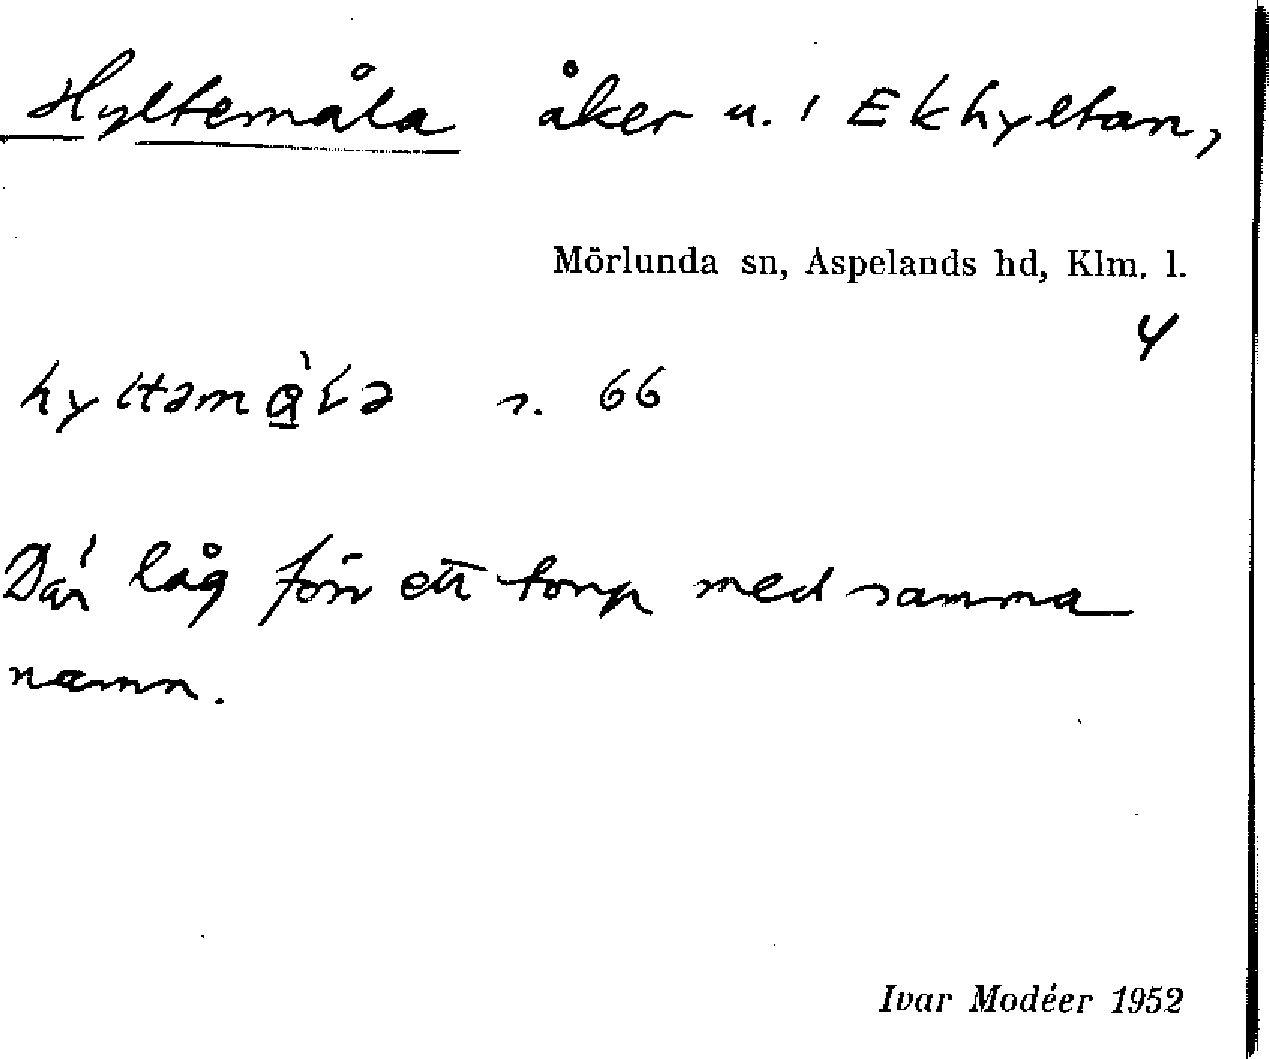 Hyltemåla åker u. 1 Ekhyltan,
Mörlunda sn, Aspelands hd, Klm. l.
4
s. 66
Där låg förr ett torp med samma
namn.
Ivar Modéer 1952